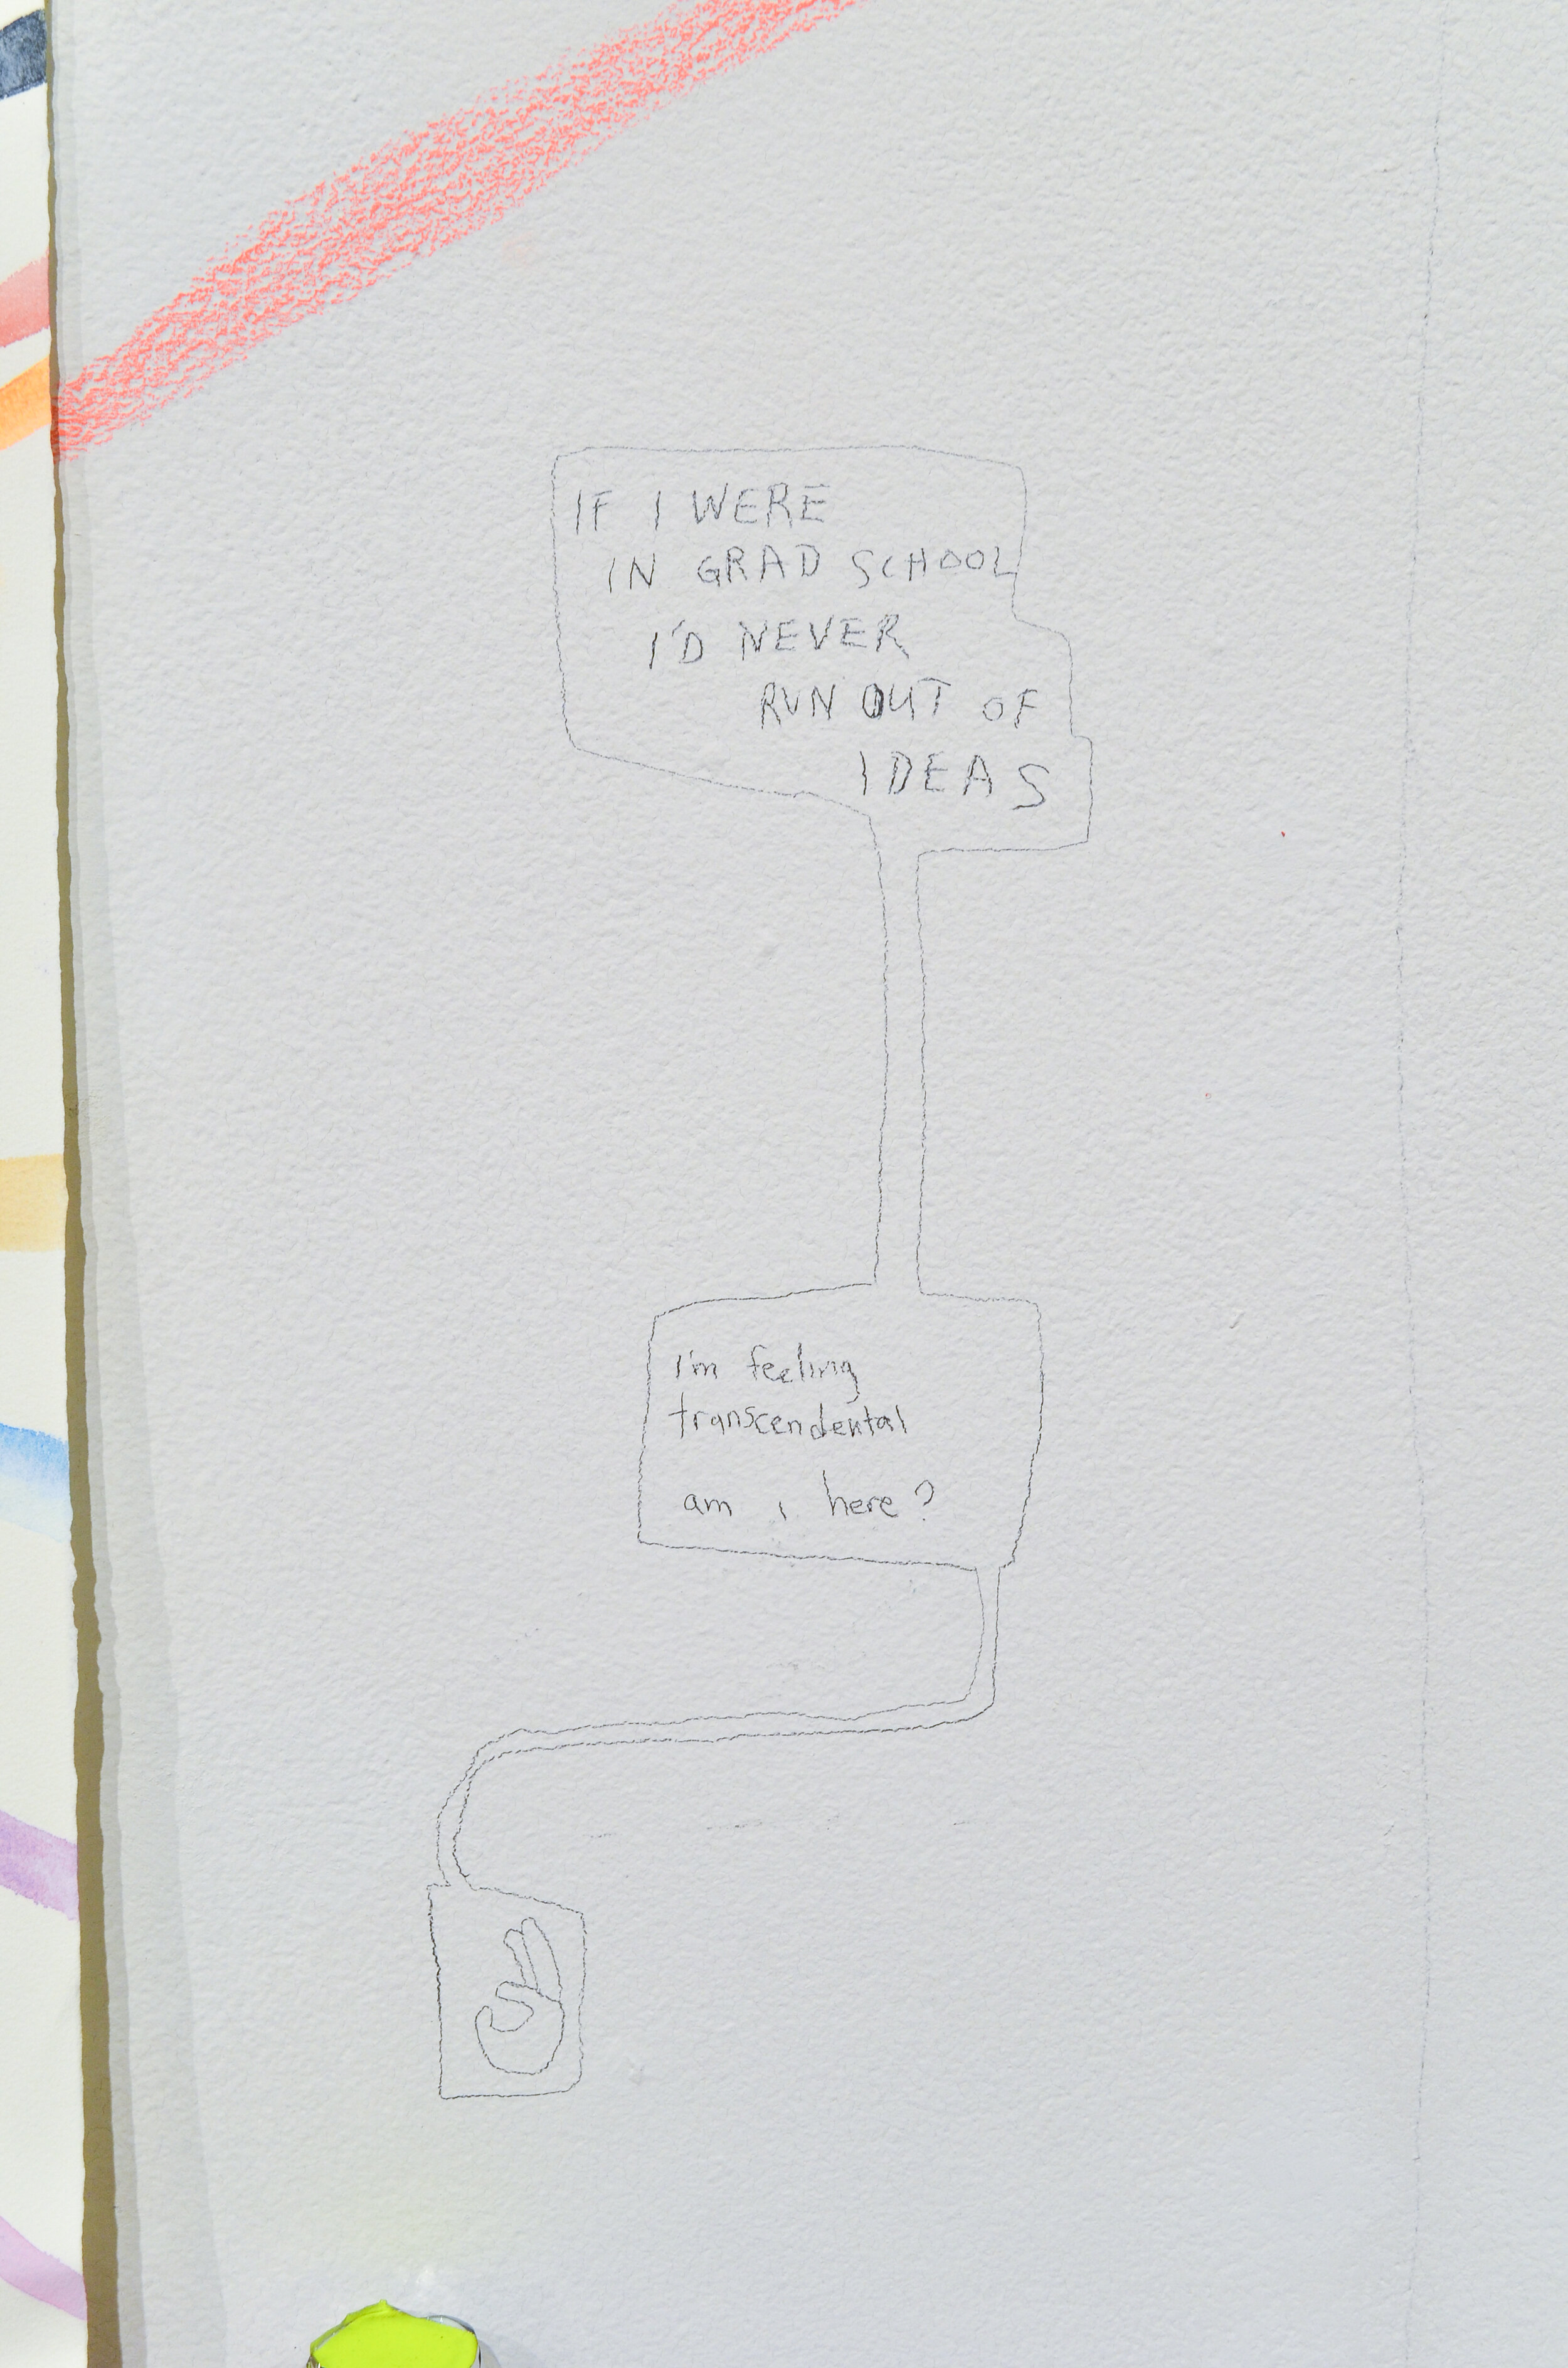 IF I WERE
IN GRAD SCHOOL
I'D NEVER
RUN OUT OF
IDEAS
I'm feeling
transcendental
am i here?